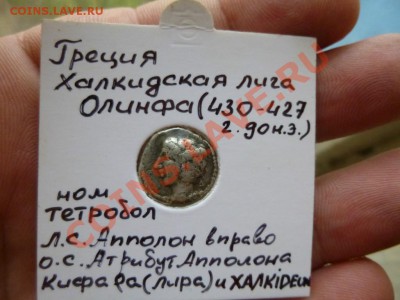 COINS.LAVE.RU
COINS.LAVE.RU
Греция
Халкидская лига
Олинфа (430-427
г. до н.э.)
COINS.LAVE.RU
ном
тетробол
Л.С. Апполон вправо
О.С. Атрибут Апполона
Кифара (лира) и ХАЛКIDEШN